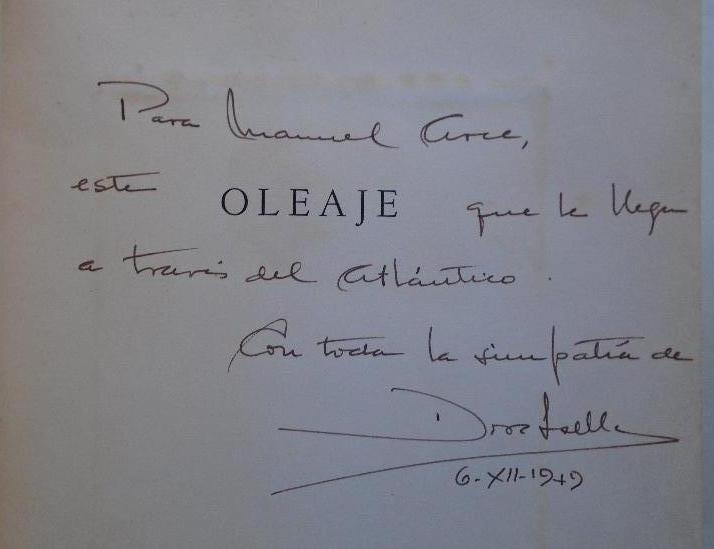 Para Manuel Arce,
este OLEAJE que le llega
a través del Atlántico.
Con toda la simpatía de
Dora Isella
6-XII-1949